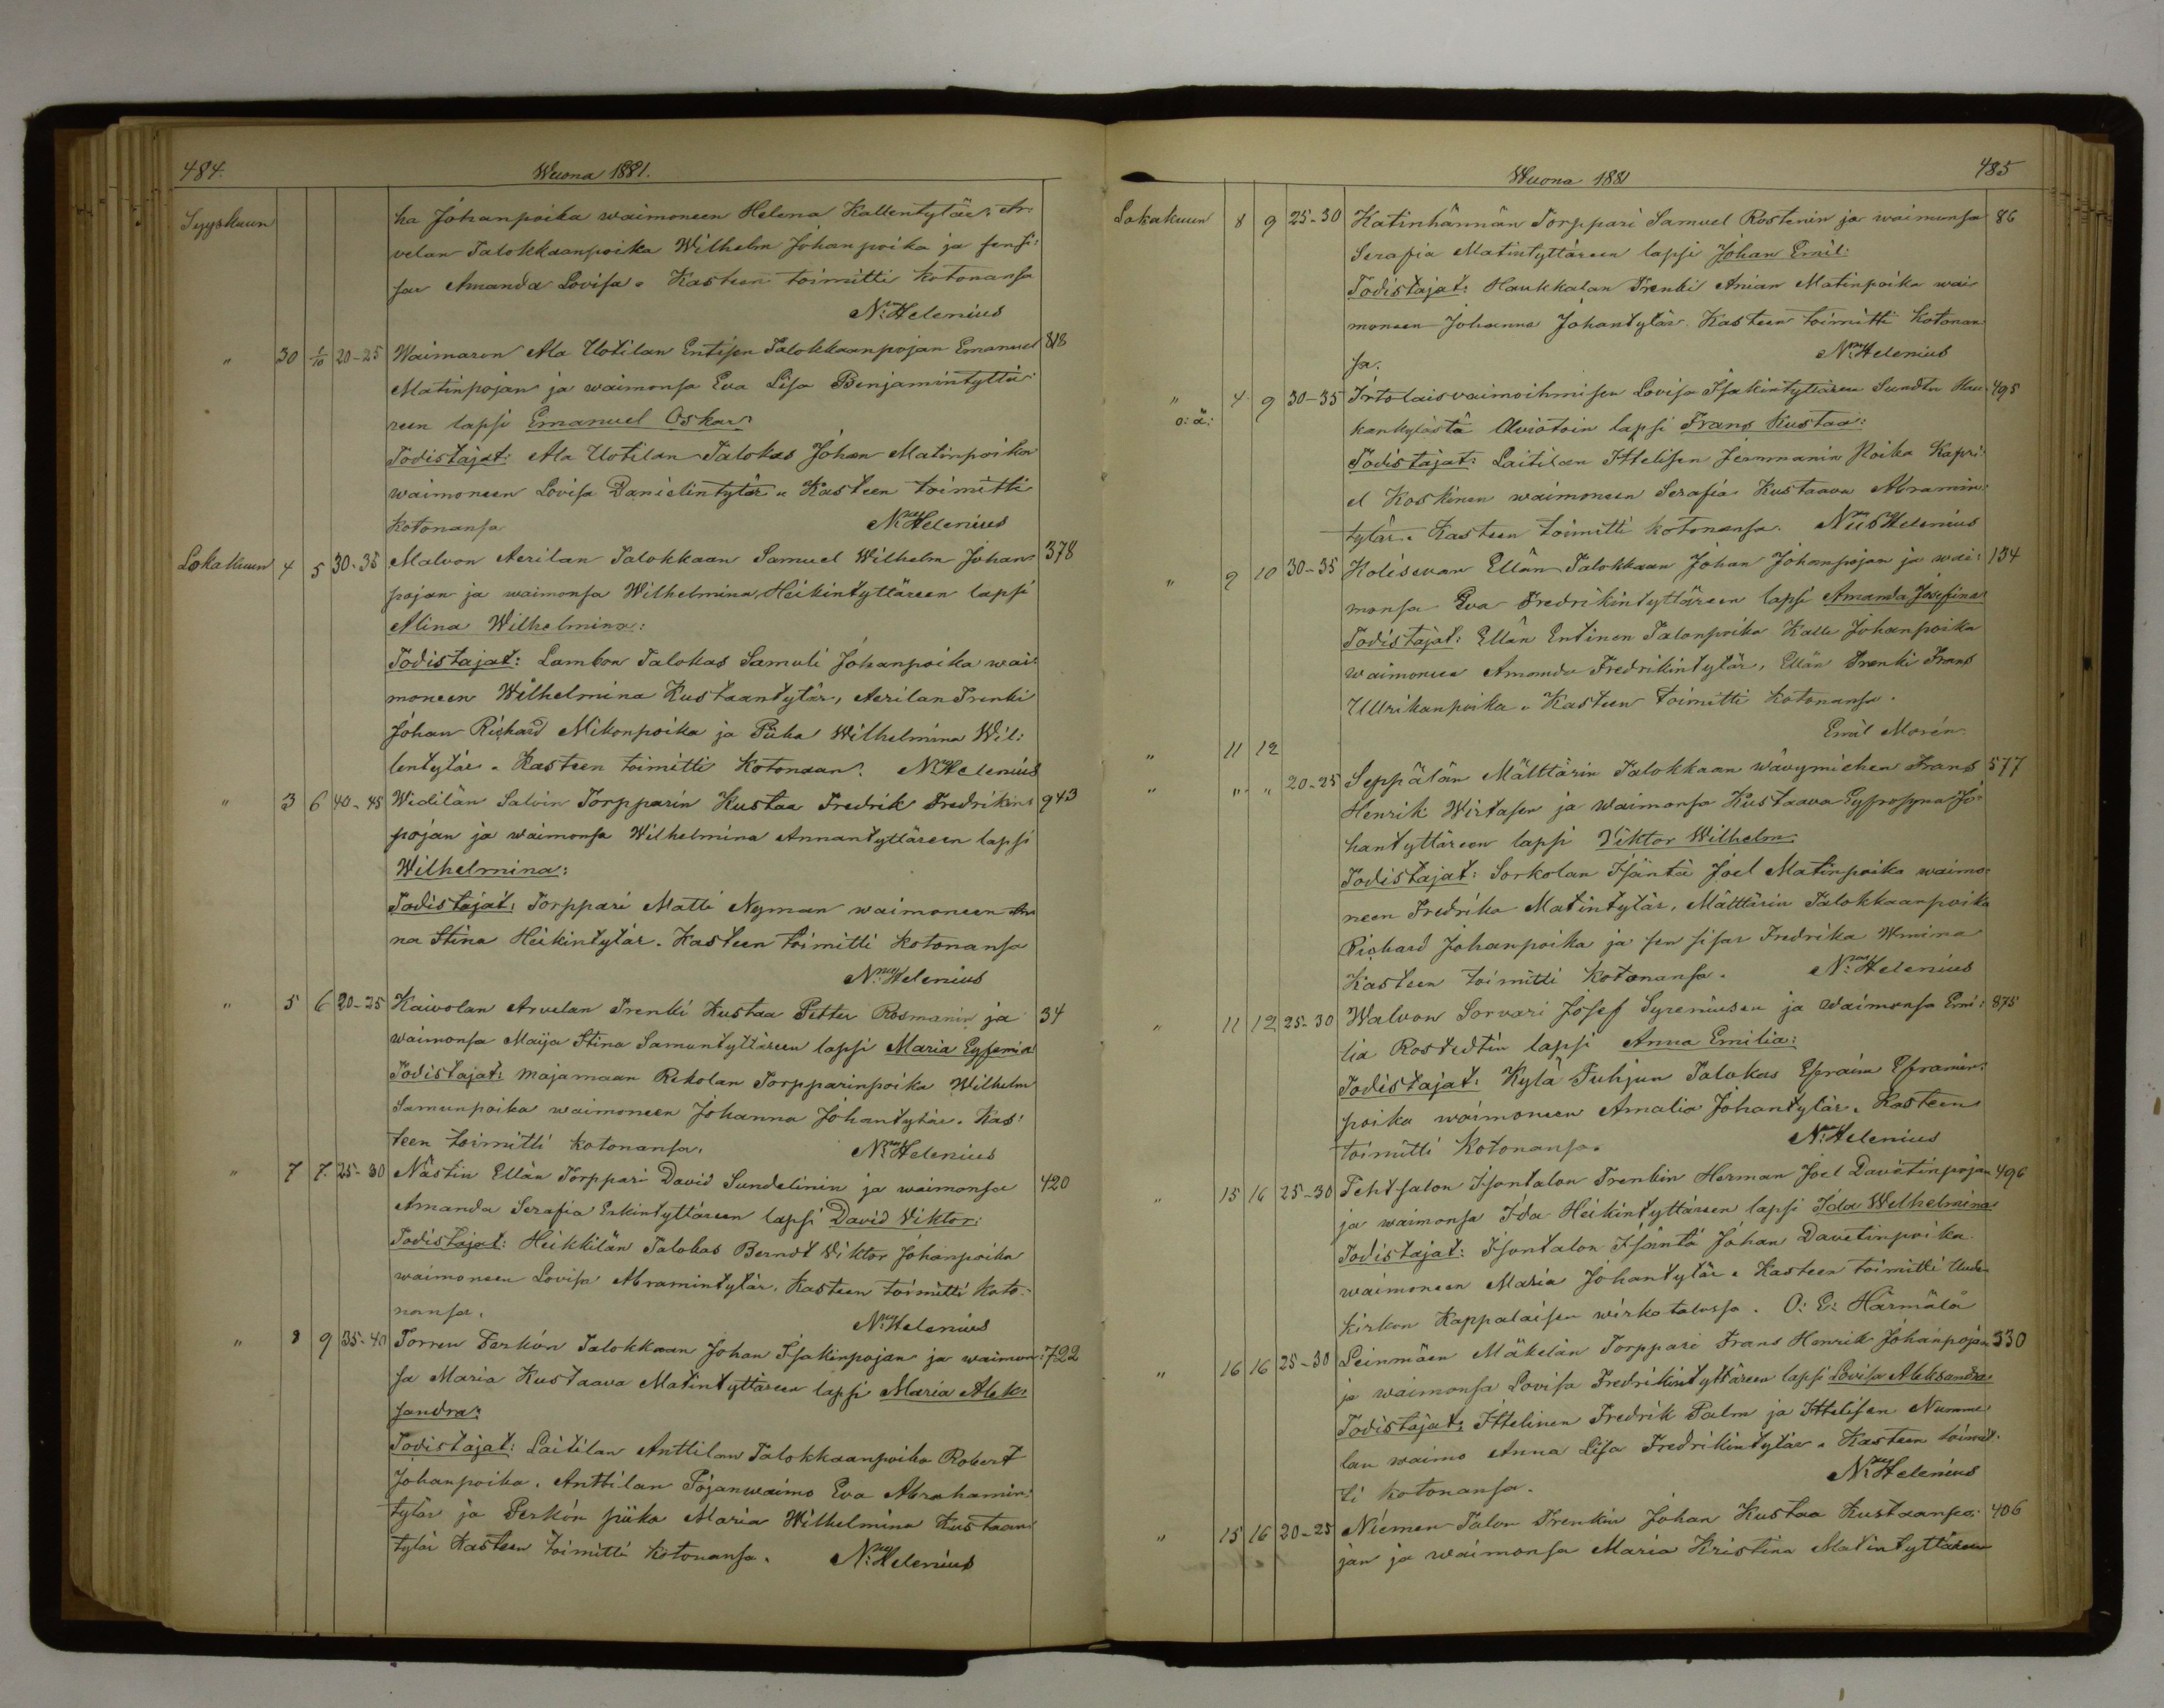 484.
Wuona 1881.
Syyskuun
ha Johanpoika waimoneen Helena Kallentytär, Ar:
velan Talokkaanpoika Wilhelm Johanpoika ja sen si:
sar Amanda Lovisa. Kasteen toimitti kotonansa
N: Helenius
" 30 1/10 20-25 Waimaron Ala Uotilan Entisen Talokkaanpojan Emanuel 818
Matinpojan ja waimonsa Eva Lisa Benjamintyttä:
reen lapsi Emanuel Oskar:
Todistajat: Ala Uotilan Talokas Johan Matinpoika
waimoneen Lovisa Danielintytär. Kasteen toimitti
kotonansa N: Helenius
Lokakuun 4 5 30-35 Malvon Aerilan Talokkaan Samuel Wilhelm Johan: 378
pojan ja waimonsa Wilhelmina Heikintyttäreen lapsi
Alina Wilhelmina:
Todistajat: Lambon Talokas Samuli Johanpoika wai:
moneen Wilhelmina Kustaantytär, Aerilan Trenki
Johan Richard Mikonpoika ja Piika Wilhelmina Wil:
lentytär. Kasteen toimitti Kotonaan. N: Helenius
" 3 6 40-45 Widilän Salvin Torpparin Kustaa Fredrik Fredrikin: 943
pojan ja waimonsa Wilhelmina Annantyttäreen lapsi
Wilhelmina:
Todistajat: Torppari Matti Nyman waimoneen An:
na Stina Heikintytär. Kasteen toimitti kotonansa
N: Helenius
" 5 6 20-25 Kaivolan Arvelan Trenki Kustaa Petter Rosmanin ja 34
waimonsa Maija Stina Samuntyttäreen lapsi Maria Eyfemia:
Todistajat: Majamaan Rekolan Torpparinpoika Wilhelm
Samunpoika waimoneen Johanna Johantytär. Kas:
teen toimitti kotonansa. N: Helenius
" 7 7. 25-30 Nästin Ellän Torppari David Sundelinin ja waimonsa 420
Amanda Serafia Erkintyttäreen lapsi David Viktor:
Todistajat: Heikkilän Talokas Berndt Viktor Johanpoika
waimoneen Lovisa Abramintytär. Kasteen toimitti koto:
nansa. N: Helenius
" 8 9 35-40 Torren Perkön Talokkaan Johan Isakinpojan ja waimon: 722
sa Maria Kustaava Matintyttäreen lapsi Maria Alek:
sandra:
Todistajat: Laitilan Anttilan Talokkaanpoika Robert
Johanpoika. Anttilan Pojanwaimo Eva Abrahamin:
tytär ja Perkön piika Maria Wilhelmina Kustaan:
tytär Kasteen toimitti kotonansa. N: Helenius
Wuona 1881
485
Lokakuun 8 9 25-30 Katinhännän Torppari Samuel Rostenin ja waimonsa 86
Serafia Matintyttäreen lapsi Johan Emil:
Todistajat: Haukkalan Trenki Anian Matinpoika wai:
moneen Johanna Johantytär. Kasteen toimitti kotonan:
sa. N: Helenius
" 4 9 30-35 Irtolaisvaimoihmisen Lovisa Isakintyttären Sundin Kau: 495
o: ä: kankylästä Aviotoin lapsi Frans Kustaa:
Todistajat: Laitilan Ittelisen Jermmanin Poika Kapri:
el Koskinen waimoneen Serafia Kustaava Abramin:
tytär. Kasteen toimitti kotonansa. Nils Helenius
" 9 10 30-35 Kolisevan Ellän Talokkaan Johan Johanpojan ja wai: 134
monsa Eva Fredrikintyttäreen lapsi Amanda Josefina:
Todistajat: Ellän Entinen Talonpoika Kalle Johanpoika
waimoneen Amanda Fredrikintytär, Ellän trenki Frans
Ullrikanpoika. Kasteen toimitti kotonansa.
Emil Morén.
" 11 12
" " " 20-25 Seppälän Mälttärin Talokkaan wävymiehen Frans 577
Henrik Wirtasen ja waimonsa Kustaava Eyfrosyna Jo:
hantyttäreen lapsi Viktor Wilhelm:
Todistajat: Sorkolan Isäntä Joel Matinpoika waimo:
neen Fredrika Matintytär, Mälttärin Talokkaanpoika
Richard Johanpoika ja sen sisar Fredrika Wmina
Kasteen toimitti kotonansa. N: Helenius
" 11 12 25-30 Walvon Sorvari Josef Syreniusen ja waimonsa Emi: 875
lia Rostedtin lapsi Anna Emilia:
Todistajat: Kylä Tuhjun Talokas Efraim Eframin:
poika waimoneen Amalia Johantytär. Kasteen
toimitti kotonansa. N: Helenius
" 15 16 25-30 Tehtsalon Isontalon Trenkin Herman Joel Davetinpojan 496
ja waimonsa Ida Heikintyttäreen lapsi Ida Wilhelmina
Todistajat: Isontalon Isäntä Johan Davetinpoika
waimoneen Maria Johantytär. Kasteen toimitti Uuden
kirkon Kappalaisen wirkatalossa. O: E: Härmälä
" 16 16 25-30 Leinmäen Mäkelän Torppari Frans Henrik Johanpojan 330
ja waimonsa Lovisa Fredrikintyttäreen lapsi Lovisa Aleksandra:
Todistajat: Ittelinen Fredrik Palm ja Ittelisen Numme:
lan waimo Anna Lisa Fredrikintytär. Kasteen toimit:
ti kotonansa. N: Helenius
" 15 16 20-25 Niemen Talon Trenkin Johan Kustaa Kustaanpo: 406
jan ja waimonsa Maria Kristina Matintyttäreen